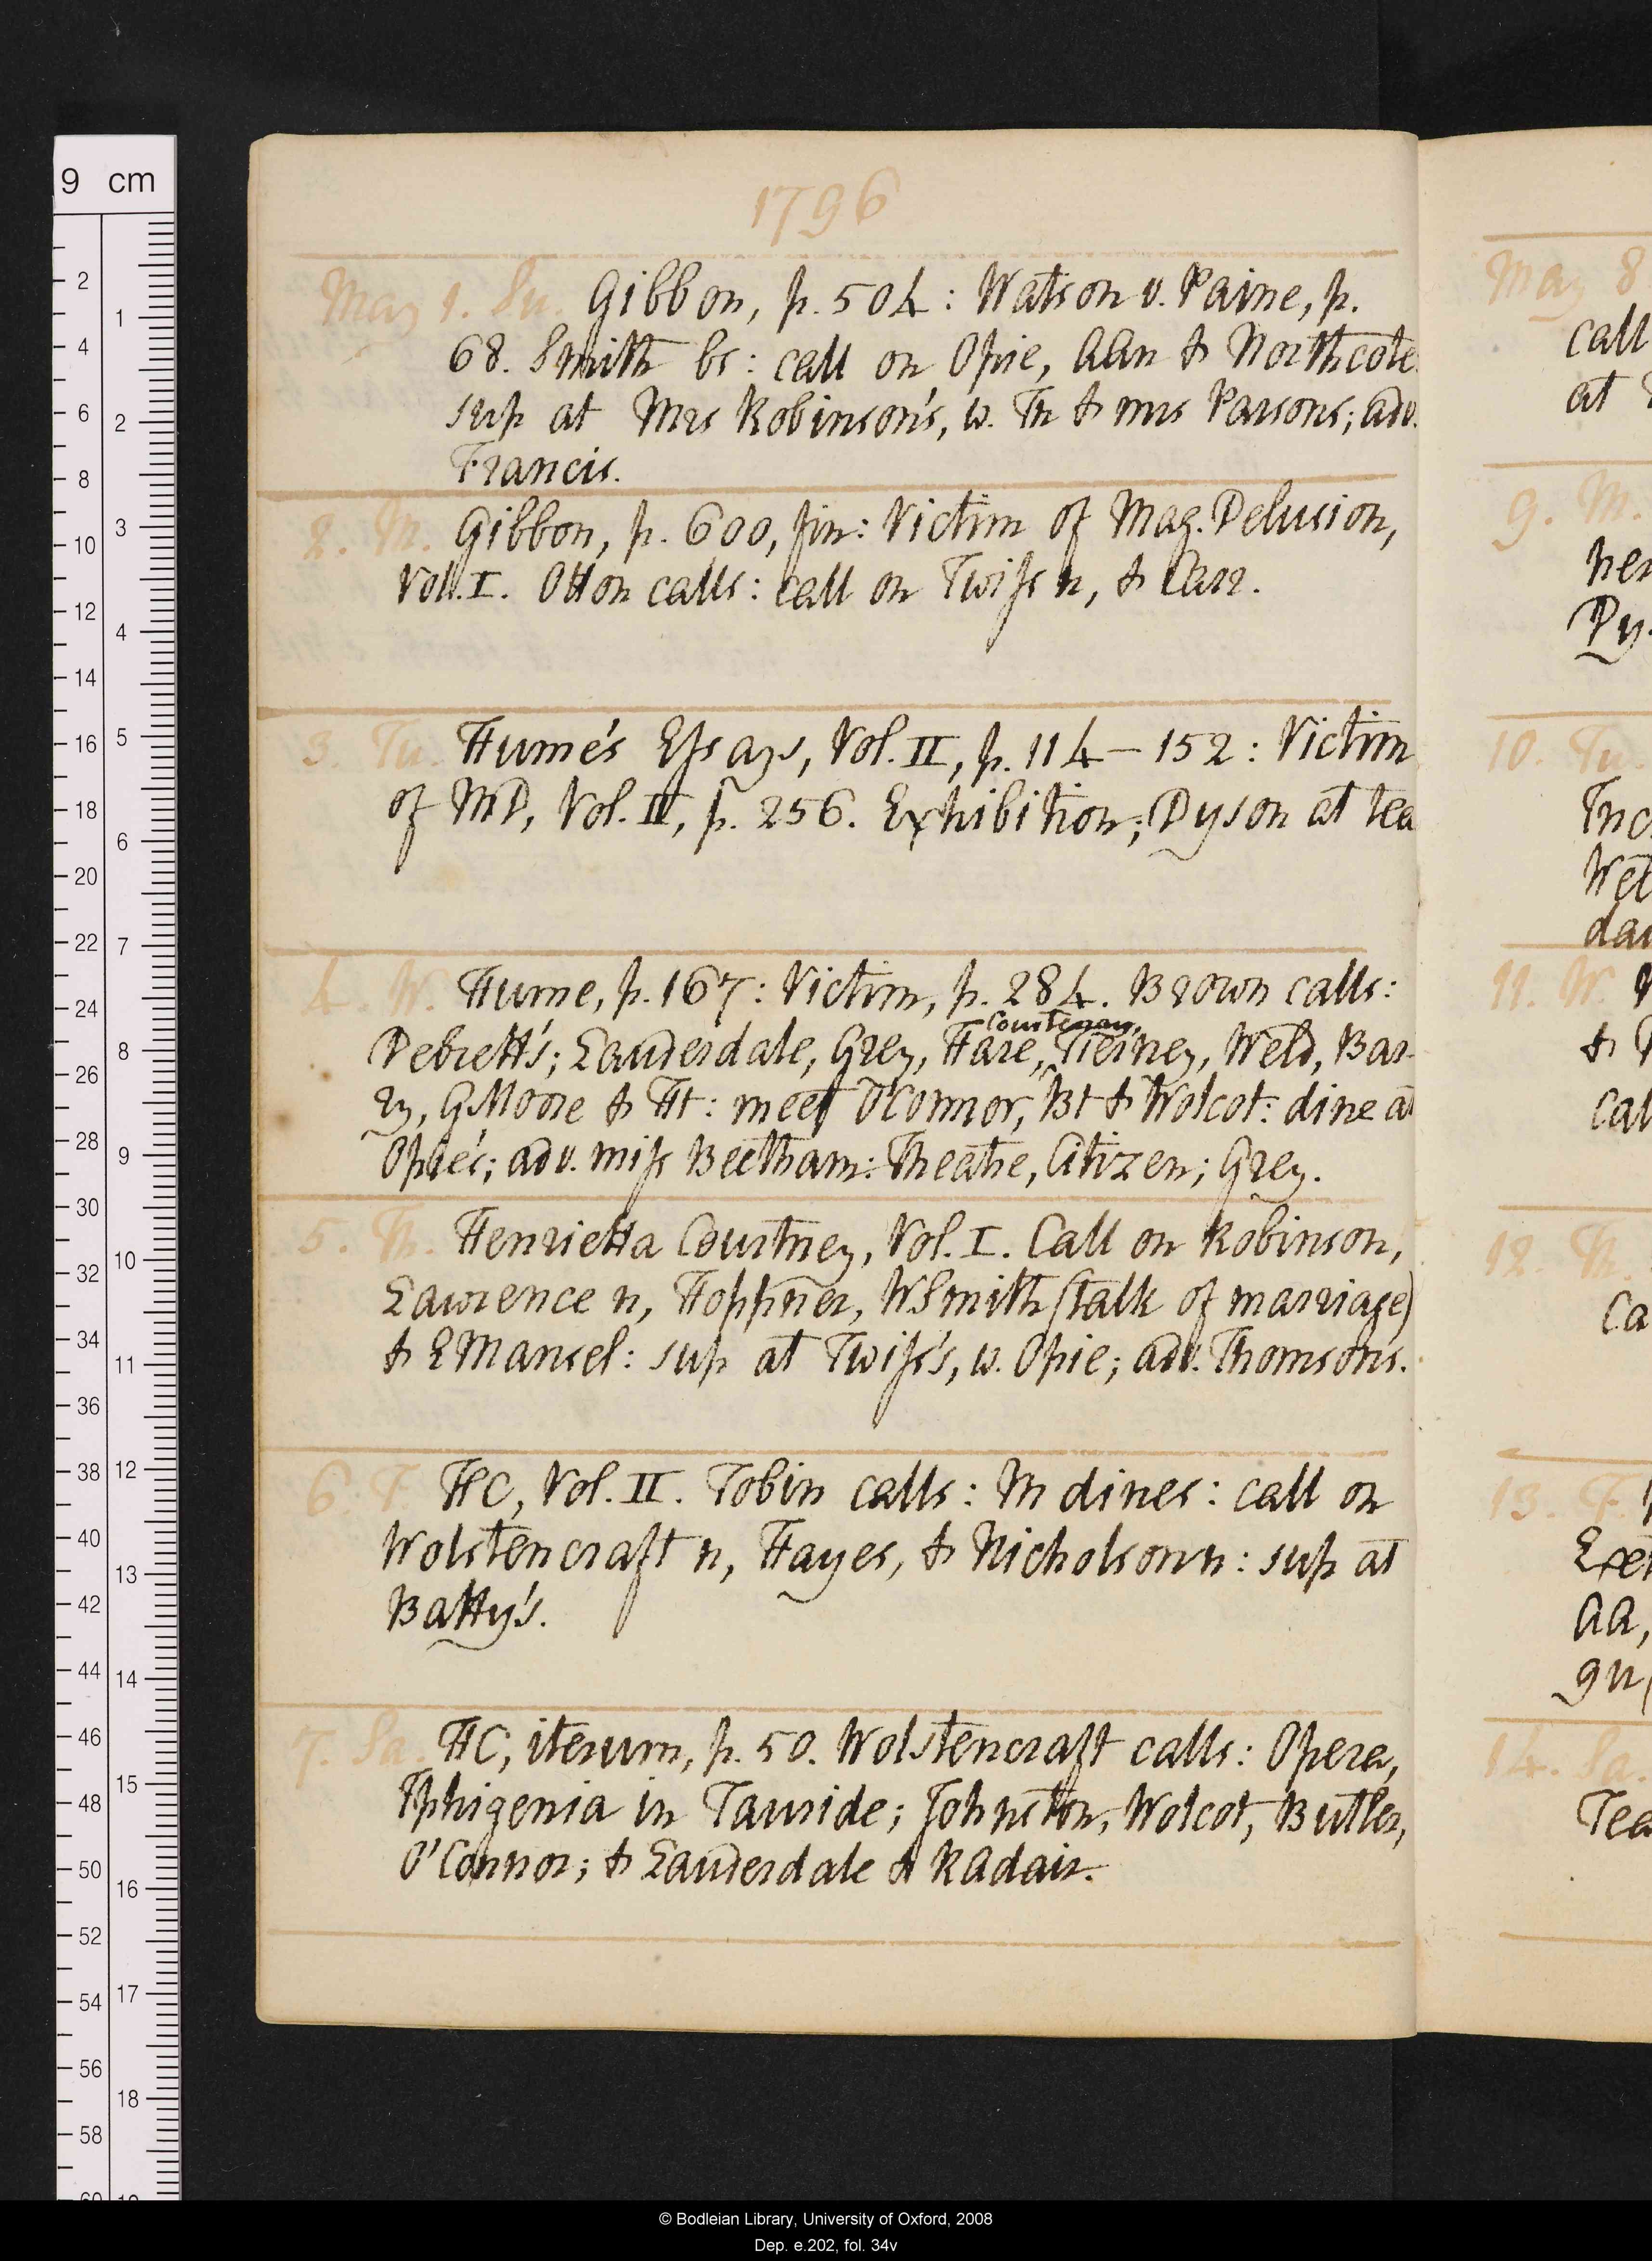 9 cm
1796
May 1. Su. Gibbon, p. 504: Watson v. Paine, p.
68. Smith bs: call on Opie, AAn & Northcote:
sup at Mrs Robinson's, w. Th & mrs Parsons; adv.
Francis.
2. M. Gibbon, p. 600, fin: Victim of Mag. Delusion,
Vol. I. Otton calls: call on Twiss n, & Carr.
3. Tu. Hume's Essays, Vol. II, p. 114–152: Victim
of MD, Vol. II, p. 256. Exhibition; Dyson at tea
4. W. Hume, p. 167: Victim, p. 284. Brown calls:
Courtenay,
Debrett's; Lauderdale, Grey, Hare, Tierney, Weld, Bar-
ry, GMoore & Ht: meet O'Connor, Bt & Wolcot: dine at
Opie's; adv. miss Beetham: Theatre, Citizen; Grey.
5. Th. Henrietta Courtney, Vol. I. Call on Robinson,
Lawrence n, Hoppner, WSmith (talk of marriage)
& EMansel: sup at Twiss's, w. Opie; adv. Thomsons.
6. F HC, Vol. II. Tobin calls: M dines: call on
Wolstencraft n, Hayes, & Nicholson n: sup at
Batty's.
7. Sa. HC, iterum, p. 50. Wolstencraft calls: Opera,
Iphigenia in Tauride; Johnston, Wolcot, Butler,
O'Connor; & Lauderdale & RAdair.
May 8
call
at
9. M.
Dy
10. Tu.
11. W.
&
12. Th.
Ca
13. F.
AA,
14. Sa.
Tea
© Bodleian Library, University of Oxford, 2008
Dep. e.202, fol. 34v